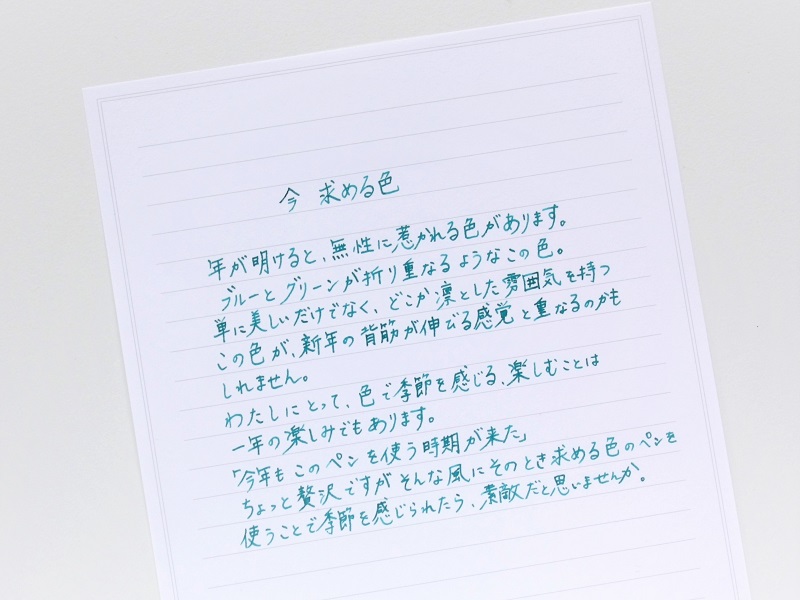 今 求める色
年が明けると、無性に惹かれる色があります。
ブルーとグリーンが折り重なるようなこの色。
単に美しいだけでなく、どこか凛とした雰囲気を持つ
この色が、新年の背筋が伸びる感覚と重なるのかも
しれません。
わたしにとって、色で季節を感じる、楽しむことは
一年の楽しみでもあります。
「今年もこのペンを使う時期が来た」
ちょっと贅沢ですがそんな風にそのとき求める色のペンを
使うことで季節を感じられたら、素敵だと思いませんか。